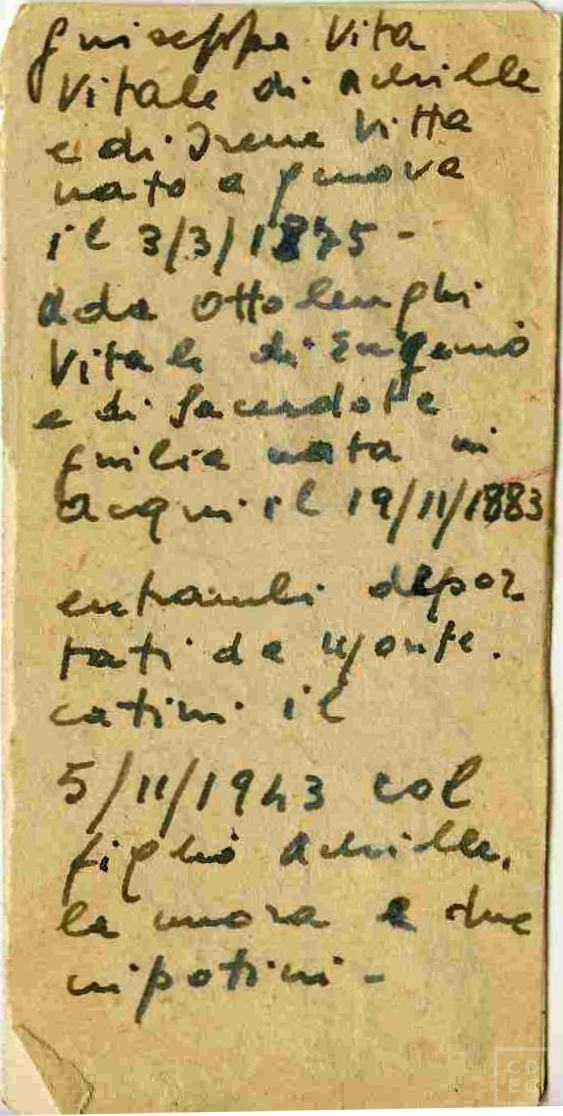 Giuseppe Vita
Vitale di Achille
e di Irene Vitta
nato a Genova
il 3/3/1875 -
Ada Ottolenghi
Vitale di Eugenio
e di Sacerdote
Giulia nata in
Acqui il 19/11/1883
entrambi depor
tati da Monte.
catini il
5/11/1943 col
figlio Achille,
la nuora e due
nipotini -
CD
EC